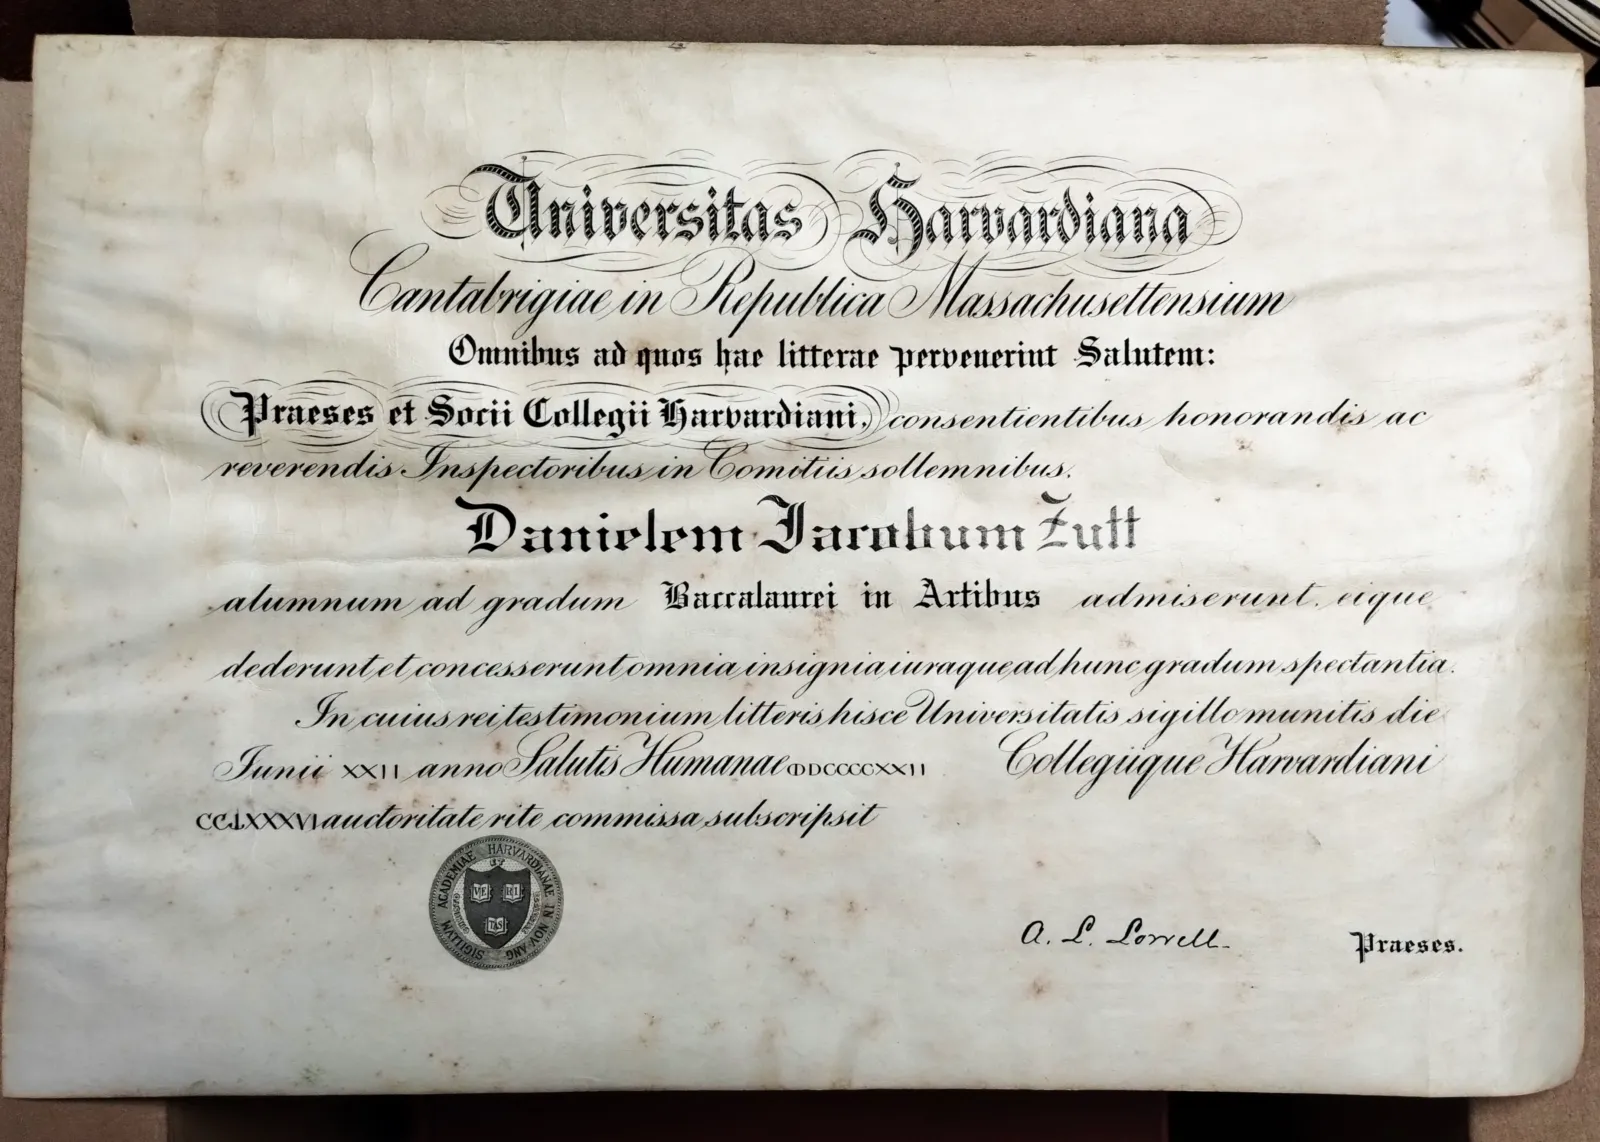 Universitas Harvardiana
Cantabrigiae in Republica Massachusettensium
Omnibus ad quos hae litterae pervenerint Salutem:
Praeses et Socii Collegii Harvardiani, consentientibus honorandis ac
reverendis Inspectoribus in Comitiis sollemnibus.
Danielem Jacobum Zutt
alumnum ad gradum Baccalaurei in Artibus admiserunt, eique
dederunt et concesserunt omnia insignia iuraque ad hunc gradum spectantia.
In cuius rei testimonium litteris hisce Universitatis sigillo munitis die
Iunii XXII anno Salutis Humanae ↀDCCCCXXII Collegiique Harvardiani
CCLXXXVI auctoritate rite commissa subscripsit
SIGILLVM ACADEMIAE HARVARDIANAE IN NOV. ANG.
VE RI
TAS
A. L. Lowell. Praeses.